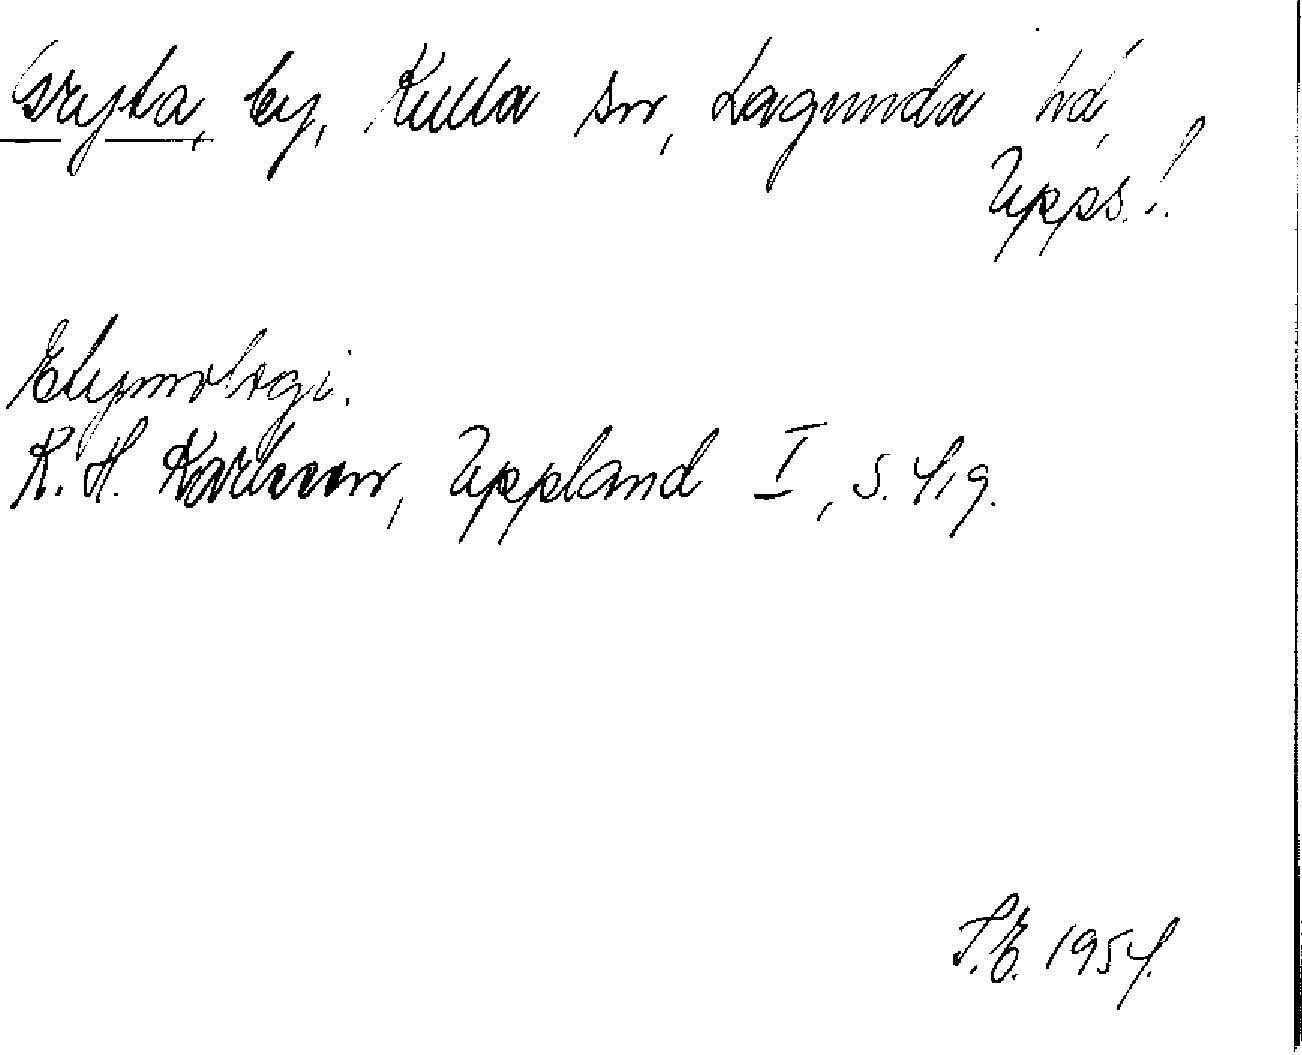 Gryta, by, Kulla sn, Lagunda hd,
Upps. l.
Etymologi.
K. H. Karlsson, Uppland I, s. 419.
S.E. 1954.